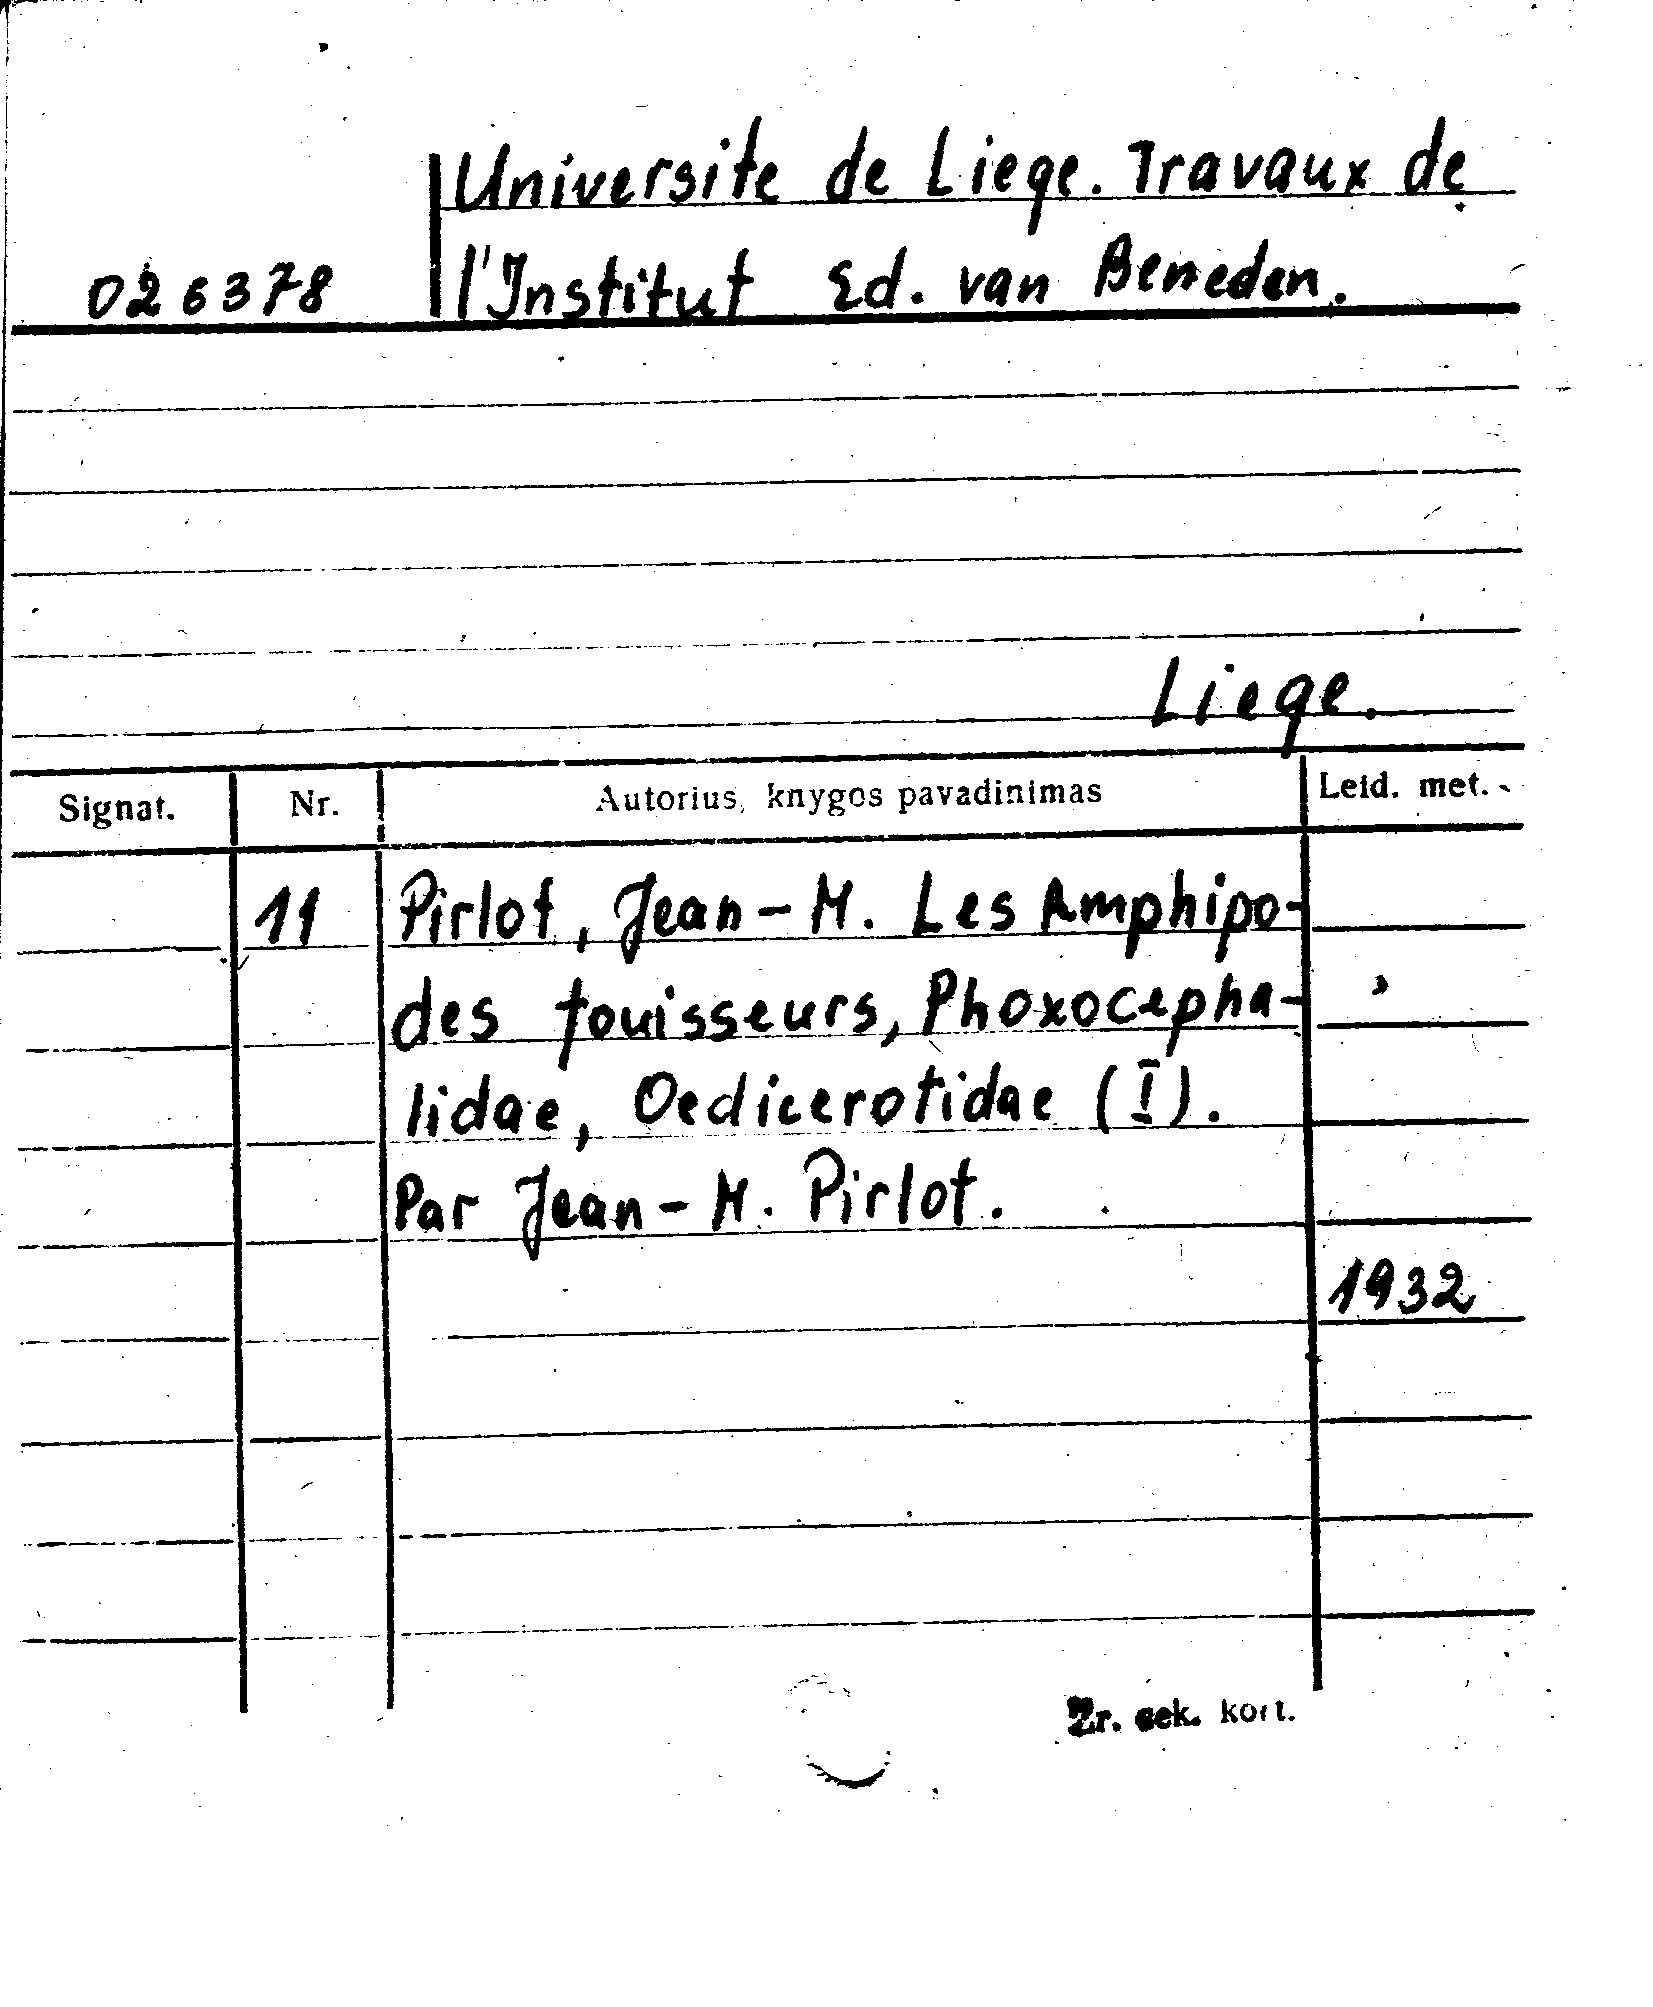 Universite de Liege. Travaux de
026378 l'Institut Ed. van Beneden.
Liege.
Signat. Nr. Autorius, knygos pavadinimas Leid. met.
11 Pirlot, Jean-M. Les Amphipo-
des fouisseurs, Phoxocepha-
lidae, Oedicerotidae (I).
Par Jean-M. Pirlot.
1932
Žr. sek. kort.